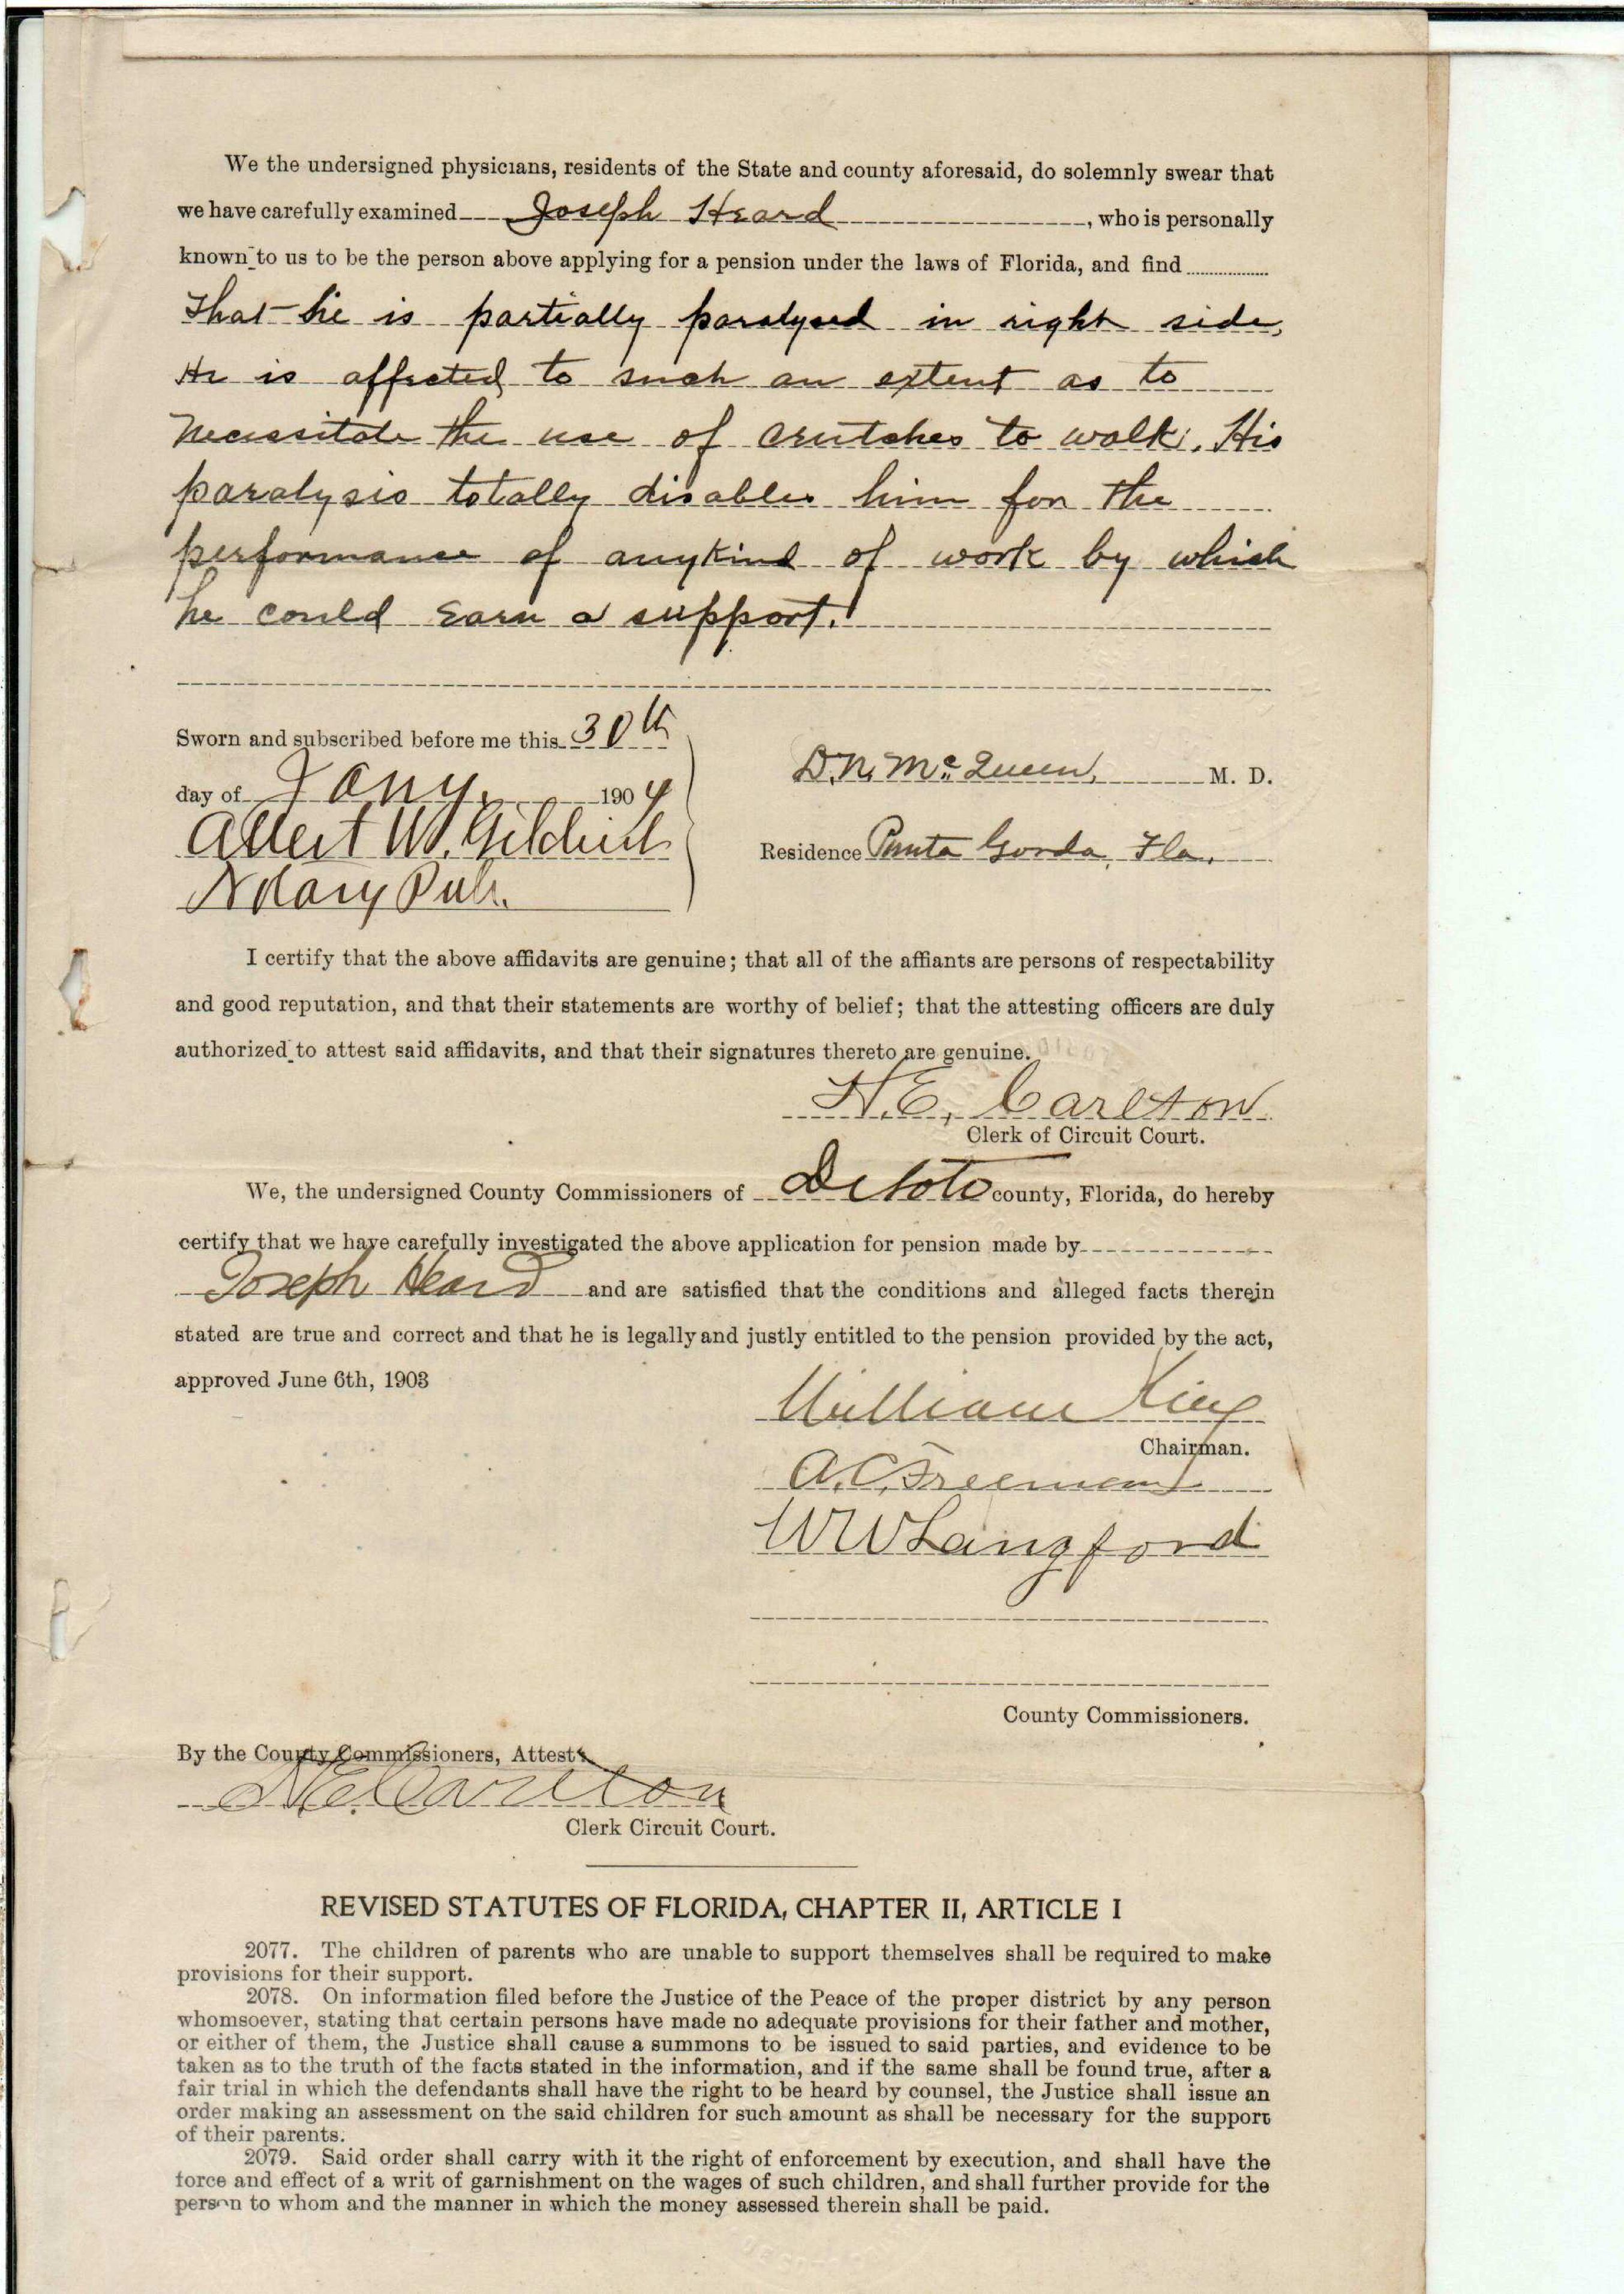 We the undersigned physicians, residents of the State and county aforesaid, do solemnly swear that
we have carefully examined Joseph Heard, who is personally
known to us to be the person above applying for a pension under the laws of Florida, and find
that he is partially paralysed in right side,
He is affected to such an extent as to
necessitate the use of crutches to walk. His
paralysis totally disables him for the
performance of anykind of work by which
he could earn a support.
Sworn and subscribed before me this 30th
day of Jany. 1904
Albert W. Gilchrist
Notary Pub.
D.N. McQueen, M. D.
Residence Punta Gorda, Fla.
I certify that the above affidavits are genuine; that all of the affiants are persons of respectability
and good reputation, and that their statements are worthy of belief; that the attesting officers are duly
authorized to attest said affidavits, and that their signatures thereto are genuine.
H.E. Carlton
Clerk of Circuit Court.
We, the undersigned County Commissioners of DeSoto county, Florida, do hereby
certify that we have carefully investigated the above application for pension made by
Joseph Heard and are satisfied that the conditions and alleged facts therein
stated are true and correct and that he is legally and justly entitled to the pension provided by the act,
approved June 6th, 1903
William King
Chairman.
A.C. Freeman
W W Langford
County Commissioners.
By the County Commissioners, Attest:
H.E. Carlton
Clerk Circuit Court.
REVISED STATUTES OF FLORIDA, CHAPTER II, ARTICLE I
2077. The children of parents who are unable to support themselves shall be required to make
provisions for their support.
2078. On information filed before the Justice of the Peace of the proper district by any person
whomsoever, stating that certain persons have made no adequate provisions for their father and mother,
or either of them, the Justice shall cause a summons to be issued to said parties, and evidence to be
taken as to the truth of the facts stated in the information, and if the same shall be found true, after a
fair trial in which the defendants shall have the right to be heard by counsel, the Justice shall issue an
order making an assessment on the said children for such amount as shall be necessary for the support
of their parents.
2079. Said order shall carry with it the right of enforcement by execution, and shall have the
force and effect of a writ of garnishment on the wages of such children, and shall further provide for the
person to whom and the manner in which the money assessed therein shall be paid.